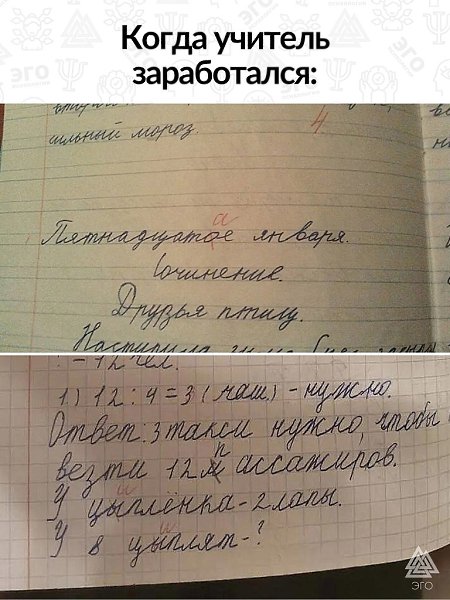 Когда учитель
заработался:
сильный мороз.
4
а
Пятнадцатое января.
Сочинение.
Друзья птиц.
Наступила зима
- 12 чел.
1) 12 : 4 = 3 (маш.) - нужно.
Ответ: 3 такси нужно, чтобы
п
везти 12 м ассажиров.
и
У цыплёнка - 2 лапы.
и
У 8 цыплят - ?
ЭГО